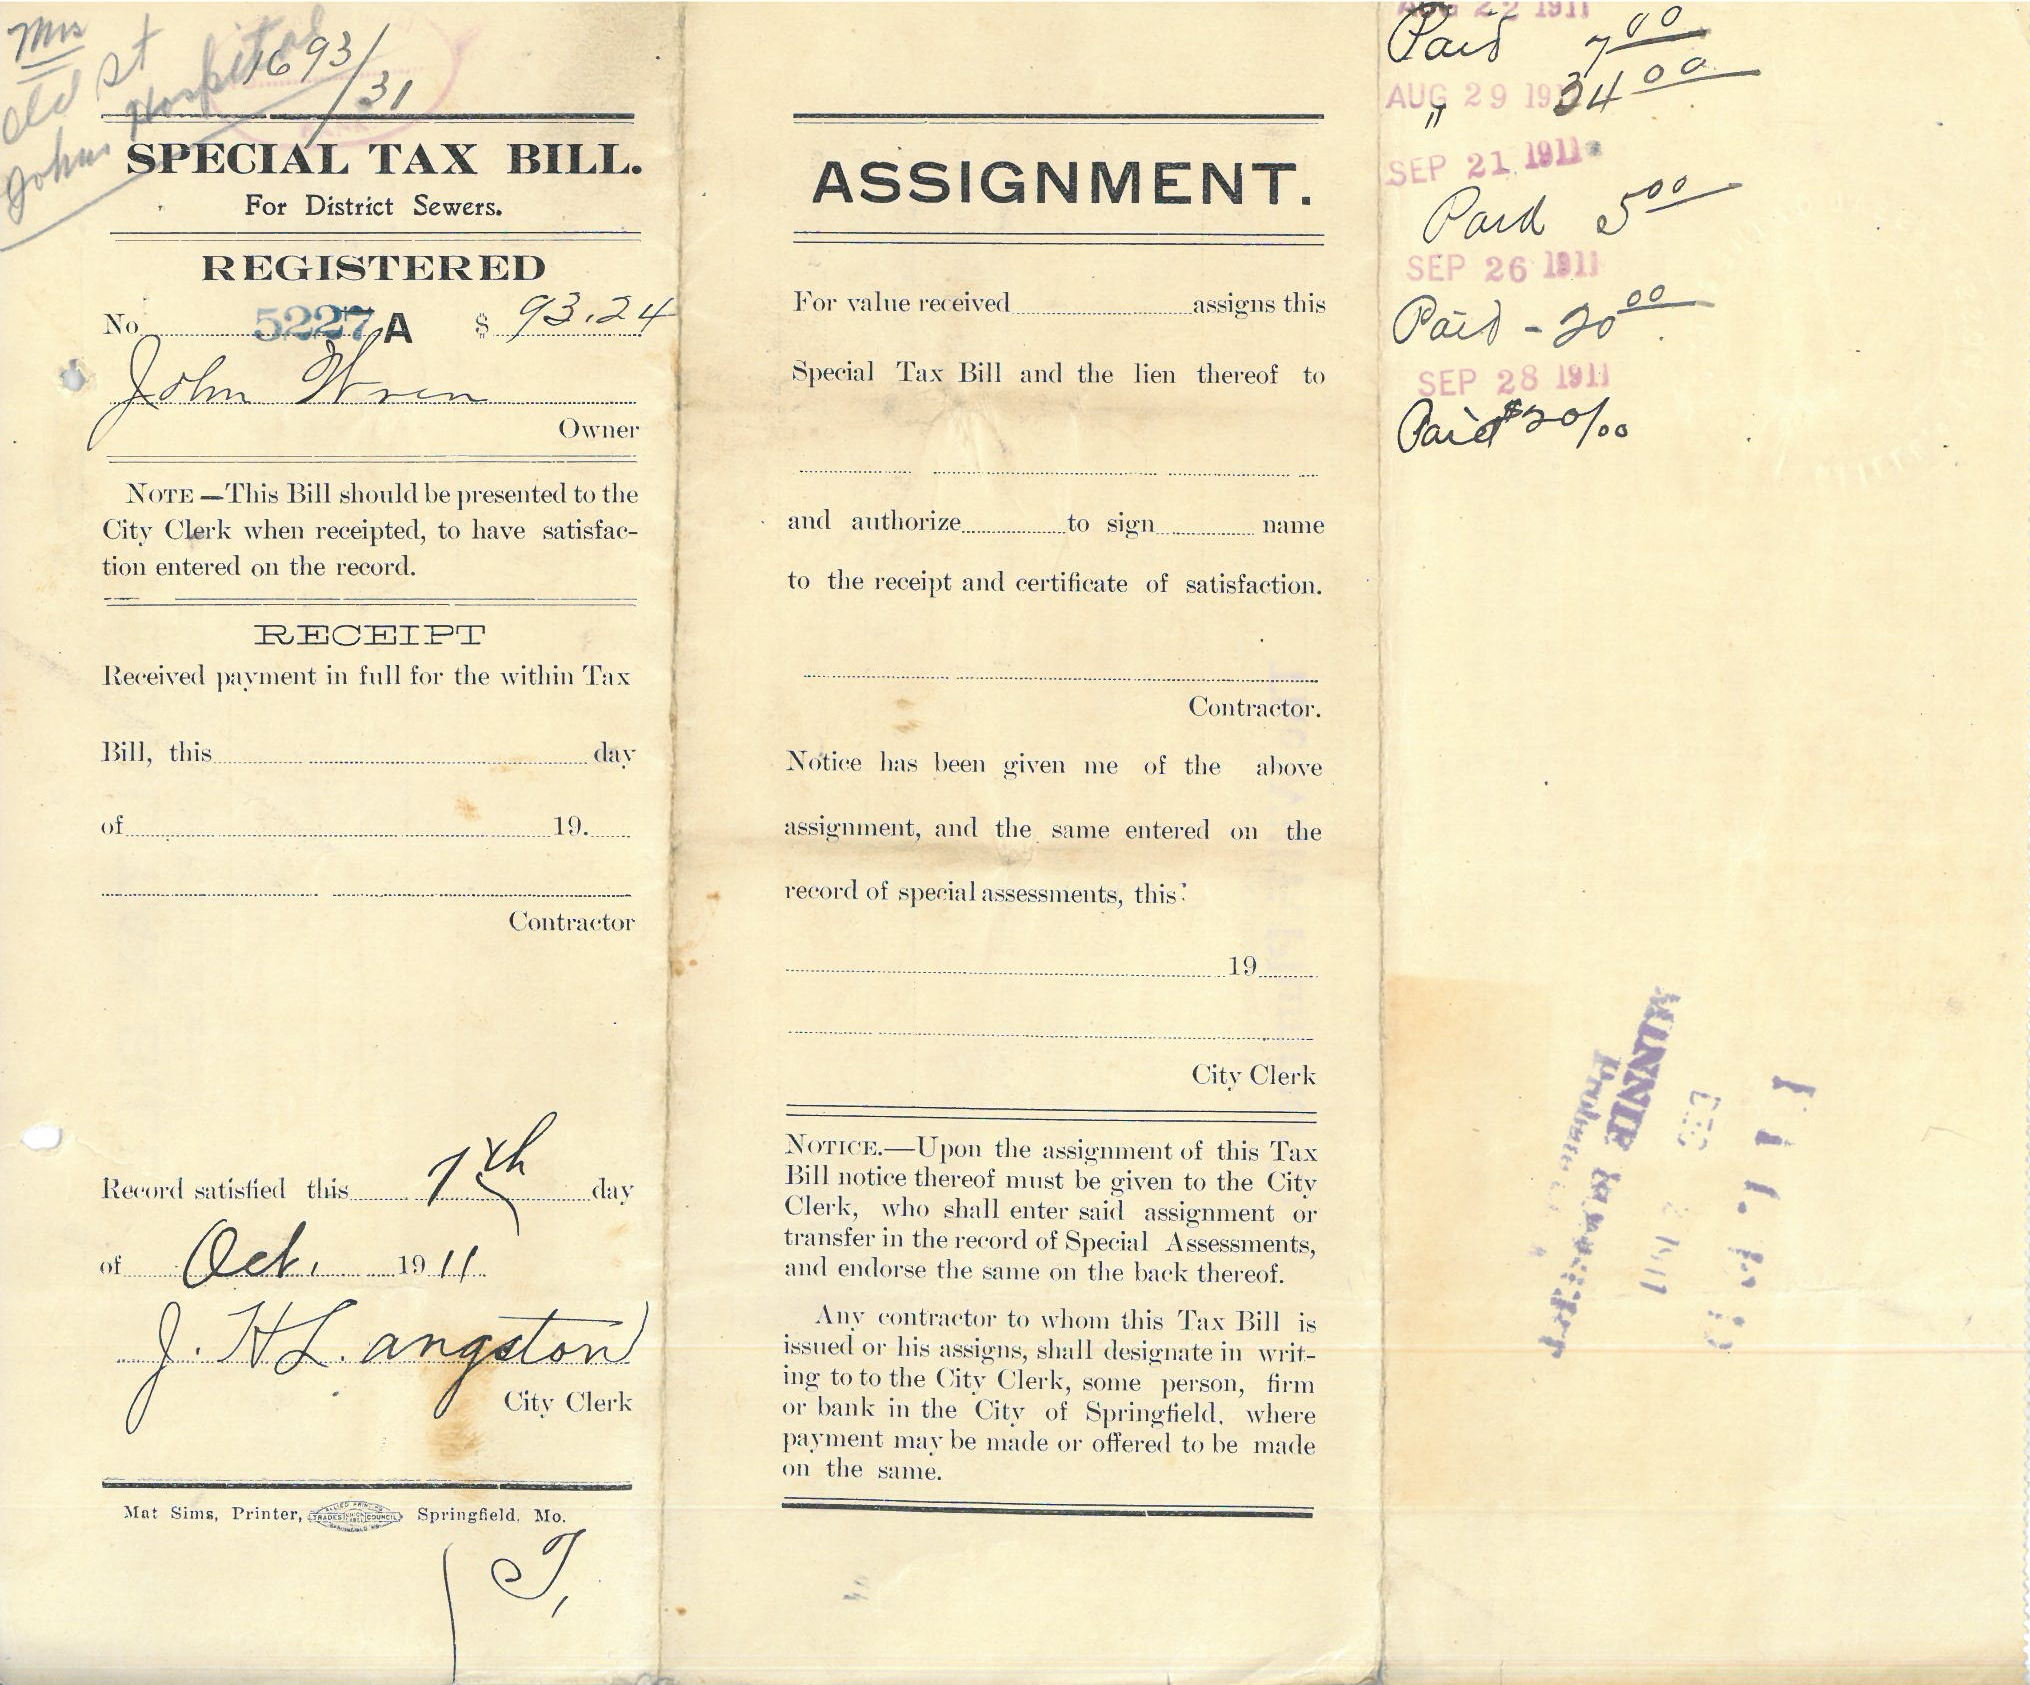 Mrs
Old St
Johns Hospital
1693/31
SPECIAL TAX BILL.
For District Sewers.
REGISTERED
No. 5227 A $ 93.24
John Wren
Owner
NOTE—This Bill should be presented to the
City Clerk when receipted, to have satisfac-
tion entered on the record.
RECEIPT
Received payment in full for the within Tax
Bill, this day
of 19.
Contractor
Record satisfied this 7th day
of Oct. 1911
J. H. Langston
City Clerk
Mat Sims, Printer, ALLIED PRINTING TRADES UNION LABEL COUNCIL SPRINGFIELD MO. Springfield, Mo.
ASSIGNMENT.
For value received assigns this
Special Tax Bill and the lien thereof to
and authorize to sign name
to the receipt and certificate of satisfaction.
Contractor.
Notice has been given me of the above
assignment, and the same entered on the
record of special assessments, this
19
City Clerk
NOTICE.—Upon the assignment of this Tax
Bill notice thereof must be given to the City
Clerk, who shall enter said assignment or
transfer in the record of Special Assessments,
and endorse the same on the back thereof.
Any contractor to whom this Tax Bill is
issued or his assigns, shall designate in writ-
ing to to the City Clerk, some person, firm
or bank in the City of Springfield, where
payment may be made or offered to be made
on the same.
AUG 22 1911
Paid 7 00
AUG 29 191
" 34 00
SEP 21 1911
Paid 5 00
SEP 26 1911
Paid - 20 00
SEP 28 1911
Paid $20/00
MINNIE
Probate